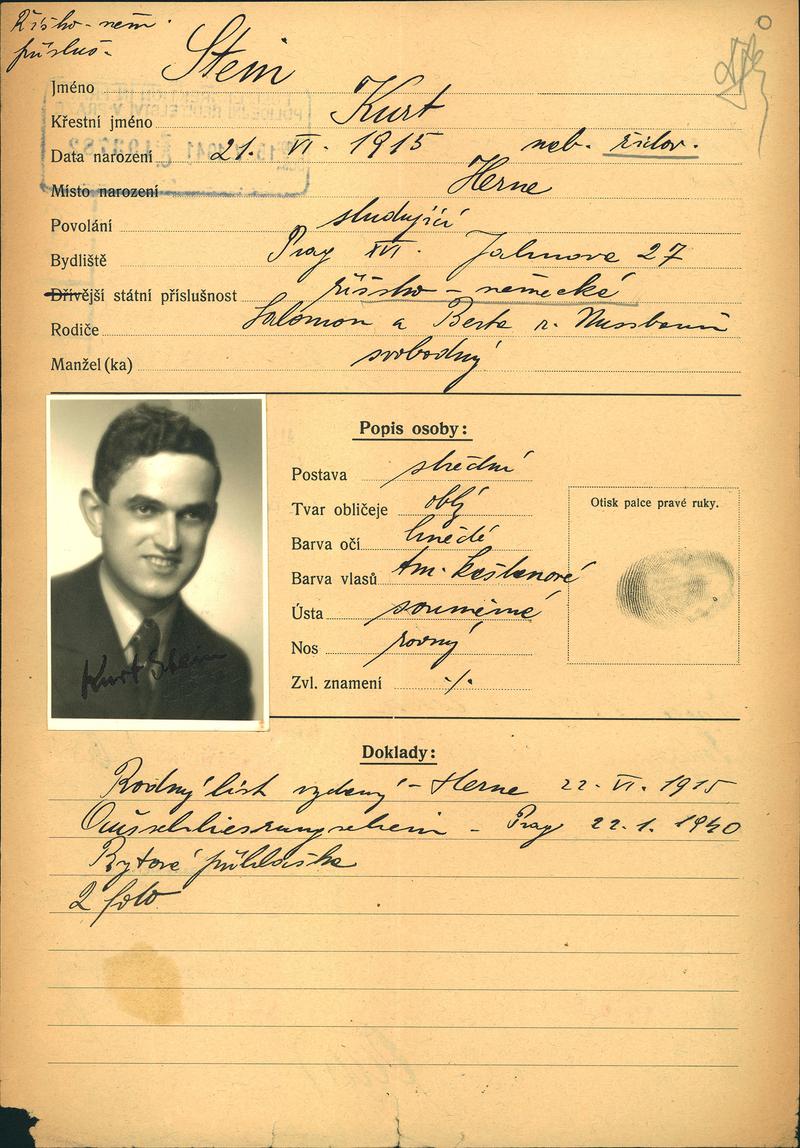 Říšsko-něm.
přísluš.
Stein
Jméno
Kurt
Křestní jméno
Data narození 21. VI. 1915 neb. židov.
Místo narození Herne
Povolání studující
Bydliště Prag XVI. Jahnova 27
Dřívější státní příslušnost říšsko - německá
Rodiče Salomon a Berta r. Nussbaum
Manžel (ka) svobodný
Popis osoby:
Postava střední
Tvar obličeje oblý
Barva očí hnědé
Barva vlasů tm. kaštanové
Ústa souměrné
Nos rovný
Zvl. znamení ·/·
Otisk palce pravé ruky.
Kurt Stein
Doklady:
Rodný list vydaný - Herne 22. VI. 1915
- Prag 22.1. 1940
Bytová přihláška
2 foto